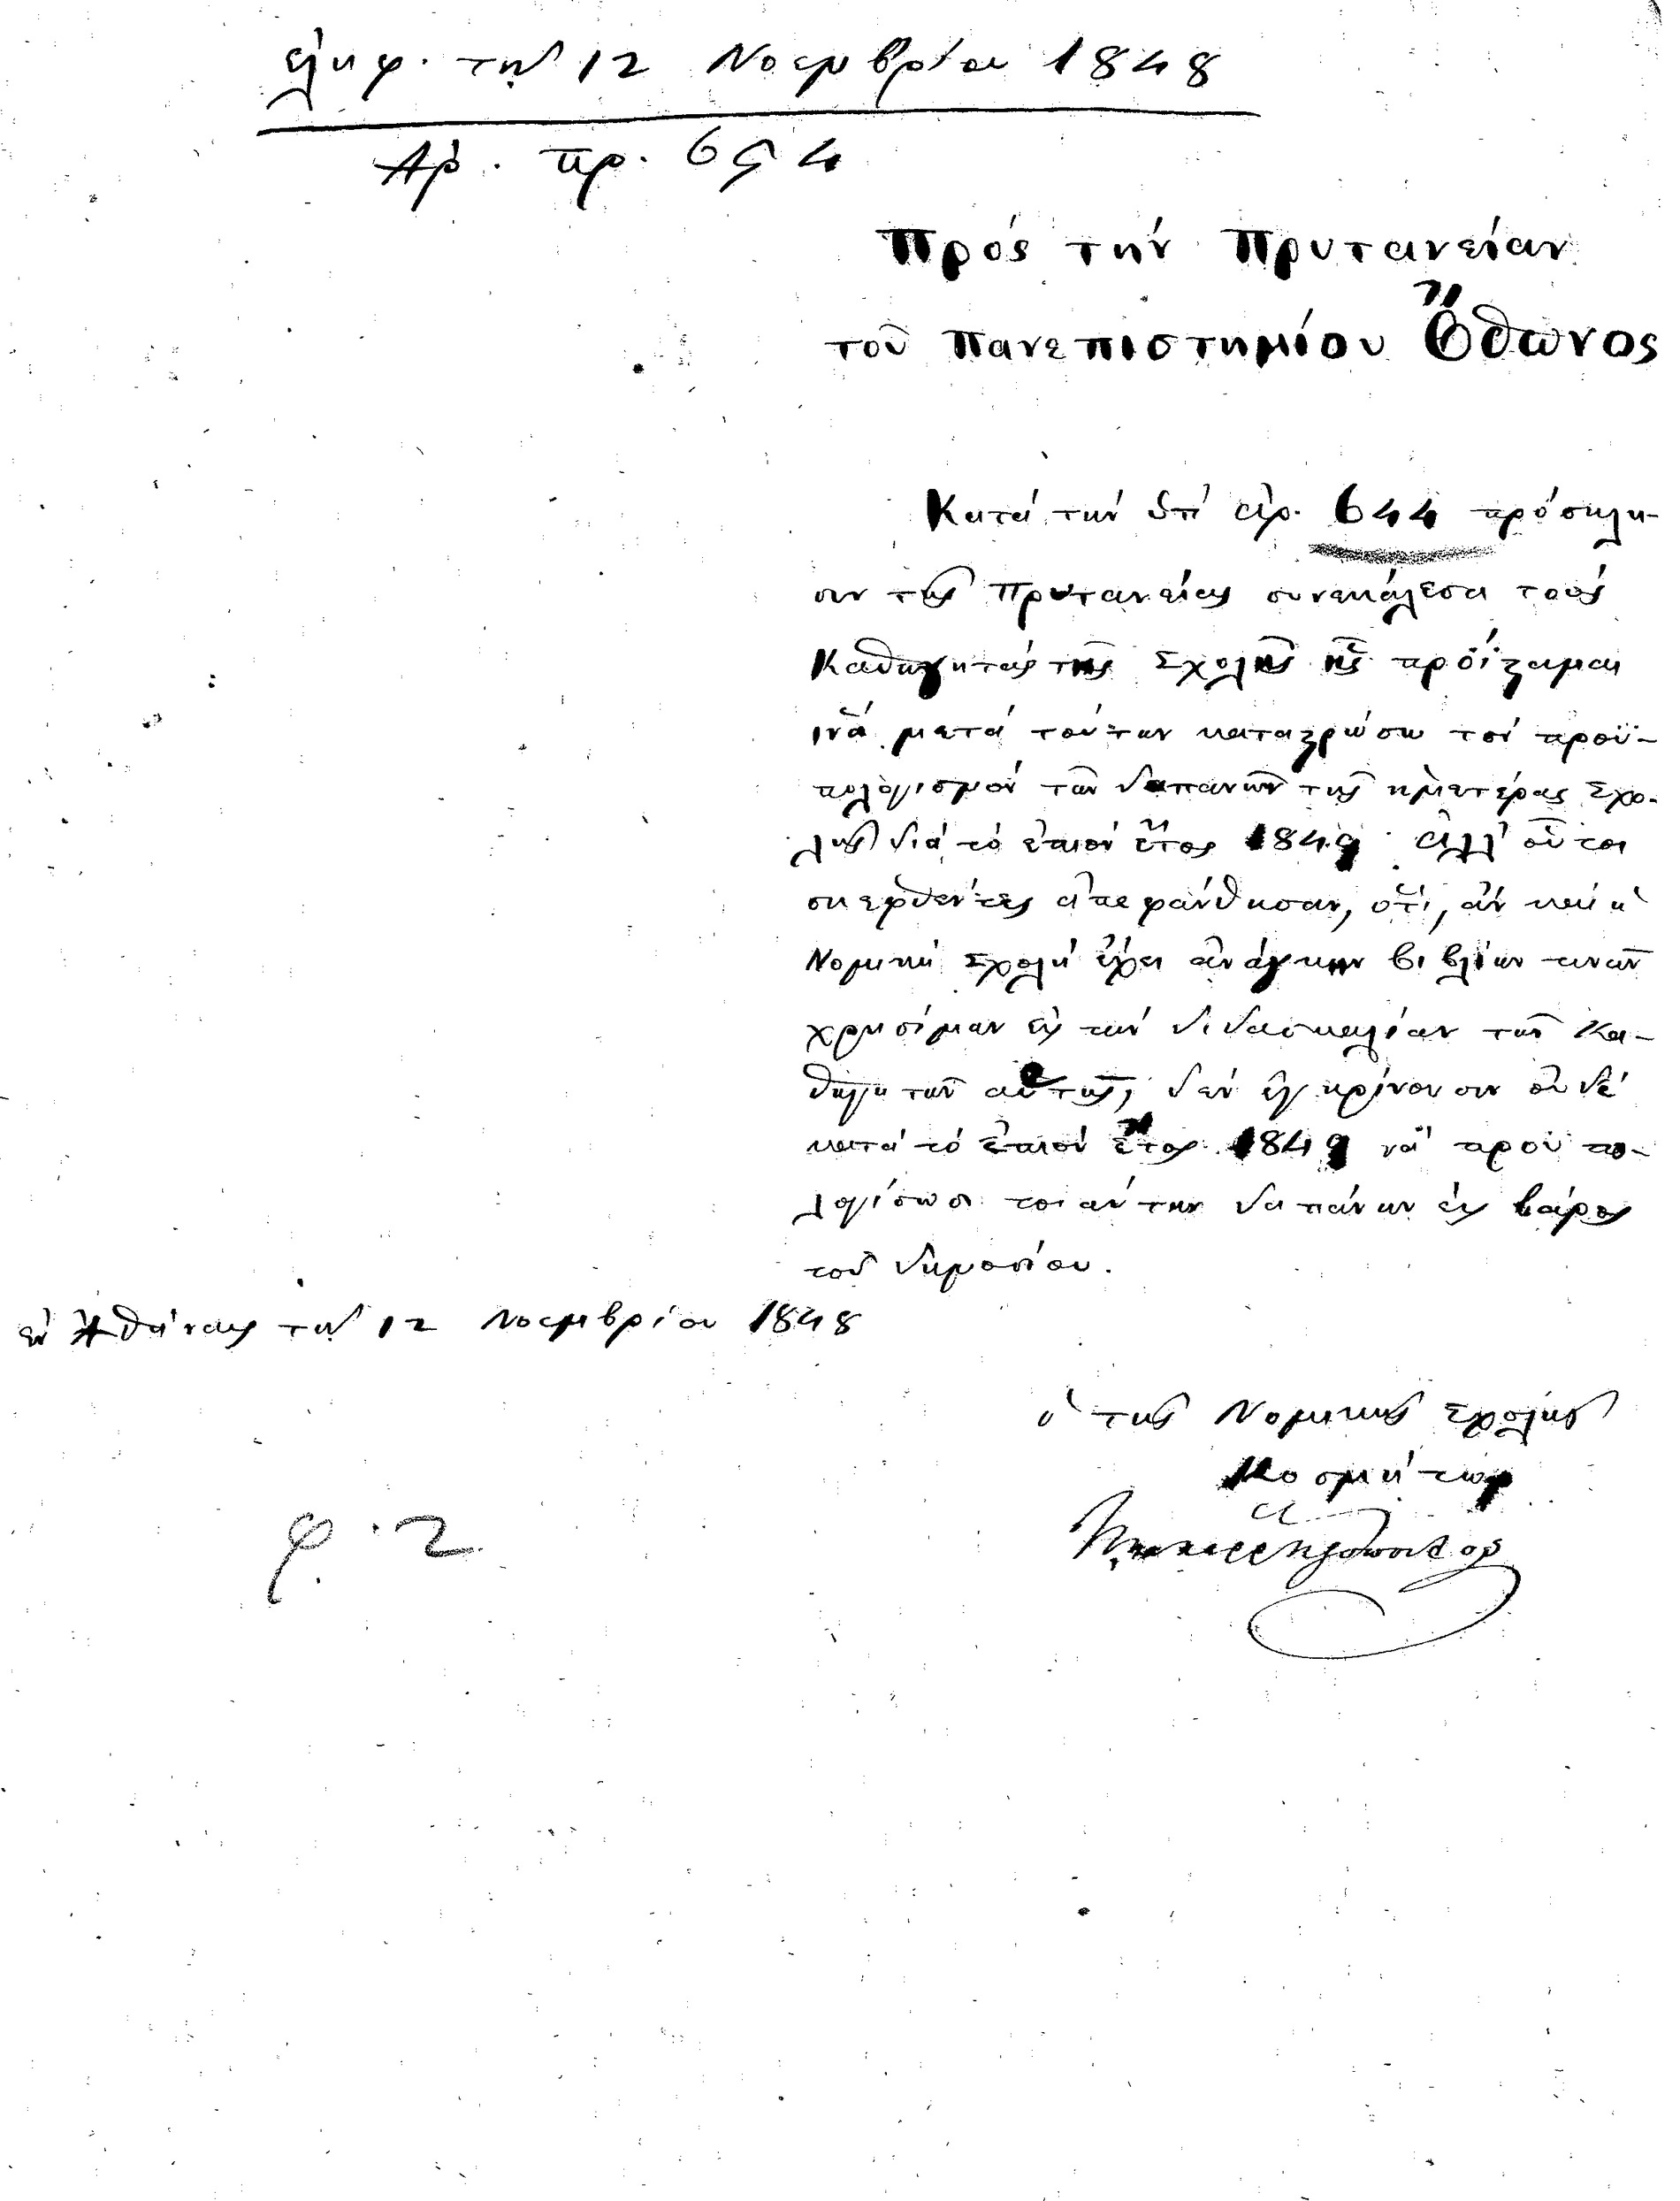 ἐλήφ. τῇ 12 Νοεμβρίου 1848
Ἀρ. πρ. 654
Πρός τήν Πρυτανείαν
τοῦ Πανεπιστημίου Ὄθωνος
Κατά τήν ὑπ' ἀρ. 644 πρόσκλη-
σιν τῆς Πρυτανείας συνεκάλεσα τούς
Καθηγητάς τῆς Σχολῆς ἧς προΐσταμαι
ἵνα μετά τούτων καταστρώσω τόν προϋ-
πολογισμόν τῶν δαπανῶν τῆς ἡμετέρας Σχο-
λῆς διά τό ἐπιόν ἔτος 1849. Ἀλλ' οὗτοι
σκεφθέντες ἀπεφάνθησαν, ὅτι, ἄν καί ἡ
Νομική Σχολή ἔχει ἀνάγκην βιβλίων τινῶν
χρησίμων εἰς τήν διδασκαλίαν τῶν Κα-
θηγητῶν αὐτῆς, δέν ἐγκρίνουσιν οὐδέ
κατά τό ἐπιόν ἔτος 1849 νά προϋπο-
λογίσωσι τοιαύτην δαπάνην εἰς βάρος
τοῦ δημοσίου.
ἐν Ἀθήναις τῇ 12 Νοεμβρίου 1848
ὁ τῆς Νομικῆς Σχολῆς
Κοσμήτωρ
φ. 2